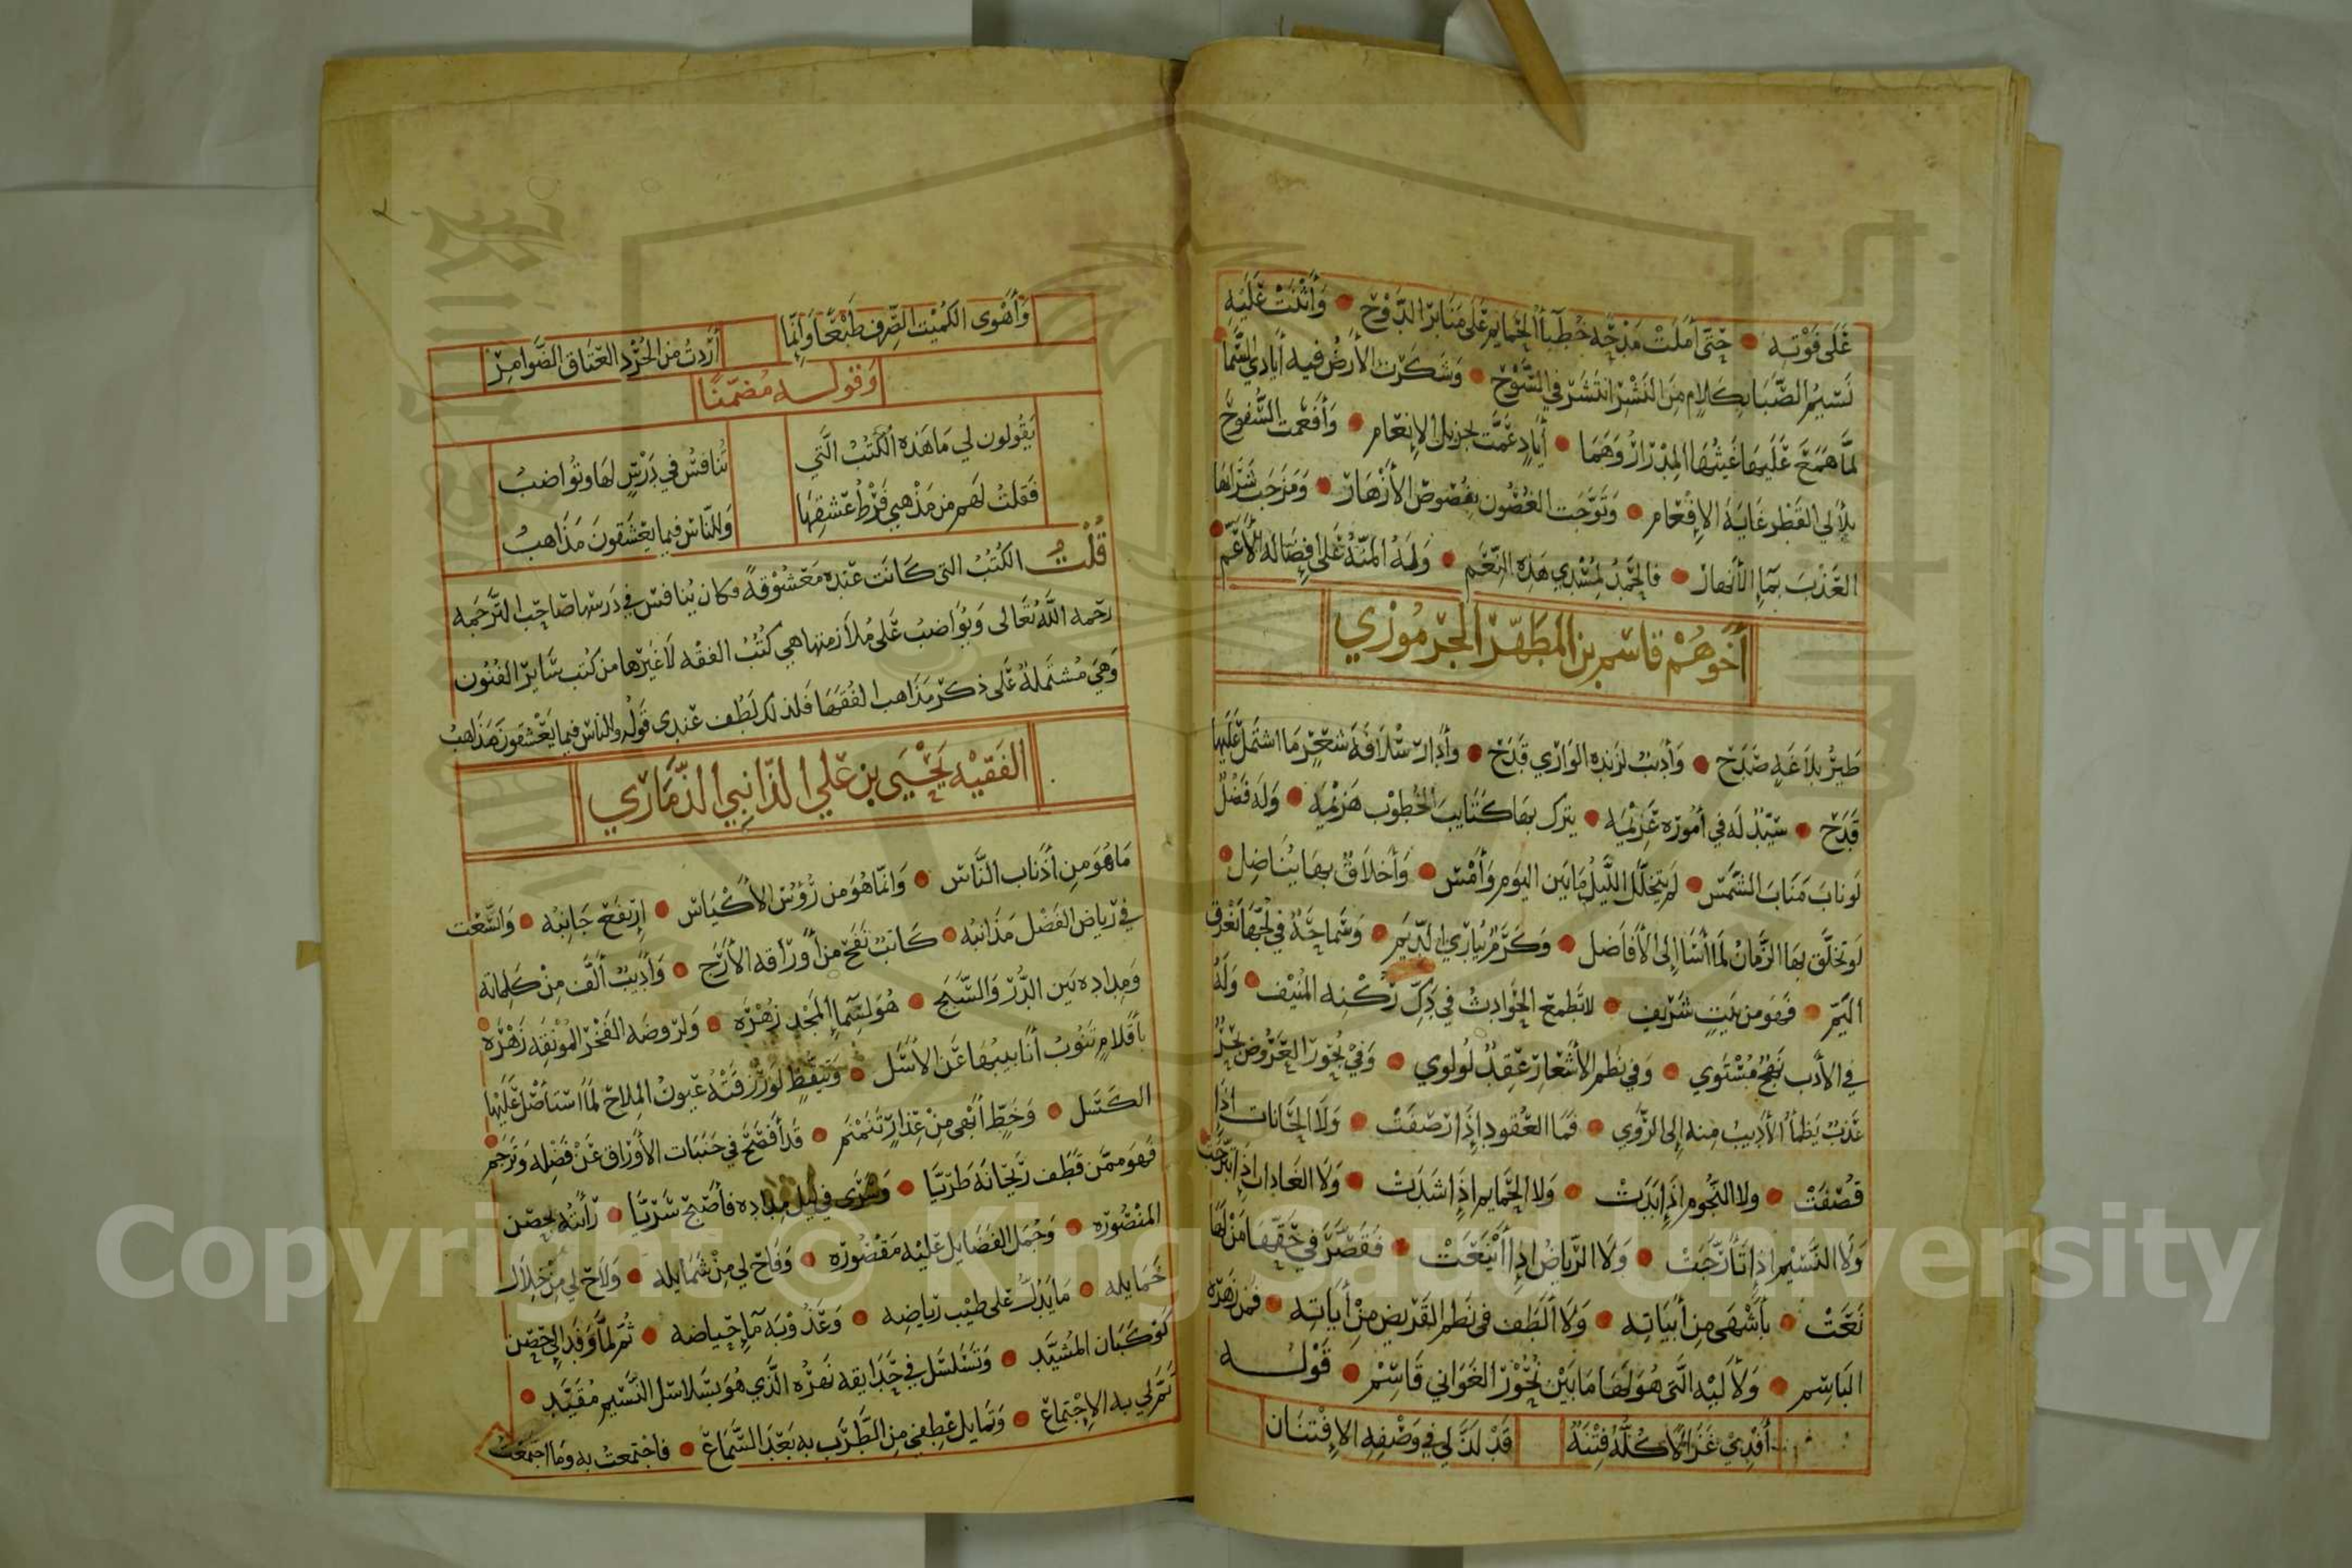 عَلَى فَوْتِهِ ● حَتَّى أَمَلَتْ مَدْحَهُ خُطَبَاءُ الحَمَايِمِ عَلَى مَنَابِرِ الدَّوْحِ ● وَأَثْنَتْ عَلَيْهِ
نَسِيْمُ الصَّبَا بِكَلَامٍ مِنَ النَّشْرِ انْتَشَرَ فِي السَّوْحِ ● وَشَكَرَتِ الأَرْضُ فِيهِ أَيَادِي السَّمَا
لَمَّا هَمَعَ عَلَيْهَا غَيْثُهَا المِدْرَارُ وَهَمَا ● أَيَادٍ عَمَّتْ بِجَزِيلِ الإِنْعَامِ ● وَأَفْعَمَتِ السُّفُوحَ
بِلَآلِي القَطْرِ غَايَةَ الإِفْعَامِ ● وَتَوَّجَتِ الغُصُونَ بِفُصُوصِ الأَزْهَارْ ● وَمَزَجَتْ شَرَابَهَا
العَذْبَ بِمَاءِ الأَنْهَارْ ● فَالحَمْدُ لِمُسْدِي هَذِهِ النِّعَمِ ● وَلَهُ المِنَّةُ عَلَى إِفْضَالِهِ الأَعَمِّ ●
أَخُوهُمْ قَاسِم بن المُطَهَّر الجَرْمُوزِي
طَيْرُ بَلَاغَةٍ صَدَحْ ● وَأَدِيبٌ لِزَنْدِهِ الوَارِي قَدَحْ ● وَأَدَارَ سُلَافَةَ شِعْرٍ مَا اشْتَمَلَ عَلَيْهَا
قَدَحْ ● سَيِّدٌ لَهُ فِي أُمُورِهِ عَزِيمَةْ ● يَتْرُكُ بِهَا كَتَايِبَ الخُطُوبِ هَزِيمَةْ ● وَلَهُ فَضْلٌ
لَوْ نَابَ مَنَابَ الشَّمْسْ ● لَمْ يَتَخَلَّلِ اللَّيْلُ مَا بَيْنَ اليَوْمِ وَأَمْسْ ● وَأَخْلَاقٌ بِهَا يُنَاضِلْ ●
لَوْ تَخَلَّقَ بِهَا الزَّمَانُ لَمَا أَسَا إِلَى الأَفَاضِلْ ● وَكَرَمٌ يُبَارِي الدِّيَمْ ● وَسَمَاحَةٌ فِي لُجِّهَا يَغْرَقُ
اليَمّ ● فَهُوَ مِنْ بَيْتٍ شَرِيفٍ ● لَا تَطْمَعُ الحَوَادِثُ فِي دَكِّ رُكْنِهِ المُنِيفْ ● وَلَهُ
فِي الأَدَبِ نَهْجٌ مُسْتَوِي ● وَفِي نَظْمِ الأَشْعَارِ عِقْدٌ لُولُوِي ● وَفِي بُحُورِ العَرُوضِ بَحْرٌ
عَذْبٌ يَظْمَأُ الأَدِيبُ مِنْهُ إِلَى الرَّوِي ● فَمَا العُقُودِ إِذَا رَصَفَتْ ● وَلَا الحَانَاتِ إِذَا
قُصِفَتْ ● وَلَا النُّجُومِ إِذَا بَدَتْ ● وَلَا الحَمَايِمِ إِذَا شَدَتْ ● وَلَا الغَادَاتِ إِذَا تَبَرَّجَتْ
وَلَا النَّسِيْمِ إِذَا تَأَرَّجَتْ ● وَلَا الرِّيَاضُ إِذَا أَيْنَعَتْ ● فَقَصَّرَ فِي حَقِّهَا مَنْ لَهَا
نَعَتْ ● بِأَشْهَى مِنْ أَبْيَاتِهِ ● وَلَا أَلْطَفَ فِي نَظْمِ القَرِيضِ مِنْ أَيَاتِهِ ● فَمِنْ زَهْرِهِ
البَاسِمِ ● وَلَآلِيْهِ الَّتِي هُوَ لَهَا مَا بَيْنَ نُحُورِ الغَوَانِي قَاسِمْ ● قَوْلُه
أَفْدِي غَزَالًا كُلُّهُ فِتْنَةٌ قَدْ لَذَّ لِي فِي وَصْفِهِ الإِفْتِنَان
وَأَهْوَى الكُمَيْتَ الصِّرْفَ طَبْعًا وَإِنَّمَا أَرَدْتُ مِنَ الجُرْدِ العِتَاقِ الضَّوَامِرْ
وَقوله مُضَمِّنًا
يَقُولُونَ لِي مَا هَذِهِ الكُتُبُ الَّتِي تُنَافِسُ فِي دَرْسٍ لَهَا وَتُوَاضِبُ
فَقُلْتُ لَهُمْ مِنْ مَذْهَبِي فَرْطُ عِشْقِهَا وَلِلنَّاسِ فِيمَا يَعْشَقُونَ مَذَاهِبُ
قُلْتُ الكُتُبُ التِي كَانَتْ عِنْدَهُ مَعْشُوْقَةً فَكَانَ يُنَافِسُ فِي دَرْسِهَا صَاحِبُ التَّرْجَمَةِ
رَحِمَهُ اللَّهُ تَعَالَى وَيُوَاضِبُ عَلَى مُلَازَمَتِهَا هِيَ كُتُبُ الفِقْهِ لَا غَيْرِهَا مِنْ كُتُبِ سَايِرِ الفُنُونِ
وَهِيَ مُشْتَمِلَةٌ عَلَى ذِكْرِ مَذَاهِبِ الفُقَهَا فَلِذَلِكَ لَطُفَ عِنْدِي قَوْلُه وللناس فيما يَعْشَقُونَ مَذَاهِبُ
الفَقِيْه يَحْيَى بن عَلِي الذَّانِبِي الذَّمَارِي
مَا هُوَ مِنْ أَذْنَابِ النَّاسْ ● وَإِنَّمَا هُوَ مِنْ رُؤُسِ الأَكْيَاسْ ● اِرْتَفَعَ جَانِبُهْ ● وَاتَّسَعَتْ
فِي رِيَاضِ الفَضْلِ مَذَانِبُهْ ● كَاتِبٌ نَفَحَ مِنْ أَوْرَاقِهِ الأَرَجْ ● وَأَدِيبٌ أَلَّفَ مِنْ كَلِمَاتِهِ
وَمِدَادِهِ بَيْنَ الدُّرِّ وَالسَّبَجْ ● هُوَ لِسَمَاءِ المَجْدِ زُهْرَه ● وَلِرَوْضَةِ الفَخْرِ المُؤْنِقَةِ زَهْرَه ●
بِأَقْلَامٍ تَنُوبُ أَنَابِيبُهَا عَنِ الأَسَلْ ● وَتَيَقُّظٍ لَوْ رُزِقَتْهُ عُيُونُ المِلَاحِ لَمَا اسْتَأْصَلَ عَلَيْهَا
الكَسَلْ ● وَخَطٍّ أَبْهَى مِنْ عِذَارٍ تَنَمْنَمَ ● قَدْ أَفْصَحَ فِي جَنَبَاتِ الأَوْرَاقِ عَنْ فَضْلِهِ وَتَرْجَمَ ●
فَهُوَ مِمَّنْ قَطَفَ رَيْحَانَهُ طَرِيَّا ● وَسَرَى فِي لَيْلِ مِدَادِهِ فَأَصْبَحَ سَرِيَّا ● رَأَيْتُهُ بِحِصْنِ
المَنْصُورَه ● وَجُمَلُ الفَضَايِلِ عَلَيْهِ مَقْصُورَه ● وَفَاحَ لِي مِنْ شَمَايِلِه ● وَلَاحَ لِي مِنْ خِلَالِ
خَمَايِلِه ● مَا يَدُلُّ عَلَى طِيْبِ رِيَاضِه ● وَعُذُوْبَةِ مَاءِ حِيَاضِه ● ثُمَّ لَمَّا وَفَدَ إِلَى حِصْنِ
كَوْكَبَانَ المُشَيَّدِ ● وَتَسَلْسَلَ فِي حَدَايِقِهِ نَهْرُهُ الَّذِي هُوَ بِسَلَاسِلِ النَّسِيْمِ مُقَيَّدِ ●
تَمَّ لِي بِهِ الإِجْتِمَاعْ ● وَتَمَايَلَ عِطْفِي مِنَ الطَّرَبِ بِهِ بَعْدَ السَّمَاعْ ● فَاجْتَمَعْتُ بِهِ وَمَا اجْتَمَعْتُ
Copyright © King Saud University